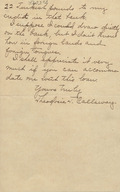 22 Turkish pounds to my
credit in that bank.
I suppose I could draw direct
on the bank, but I don't know
law in foreign lands and
foreign tongues.
I shall appreciate it very
much if you can accommo-
date me with this loan
Yours Truly,
Callaway